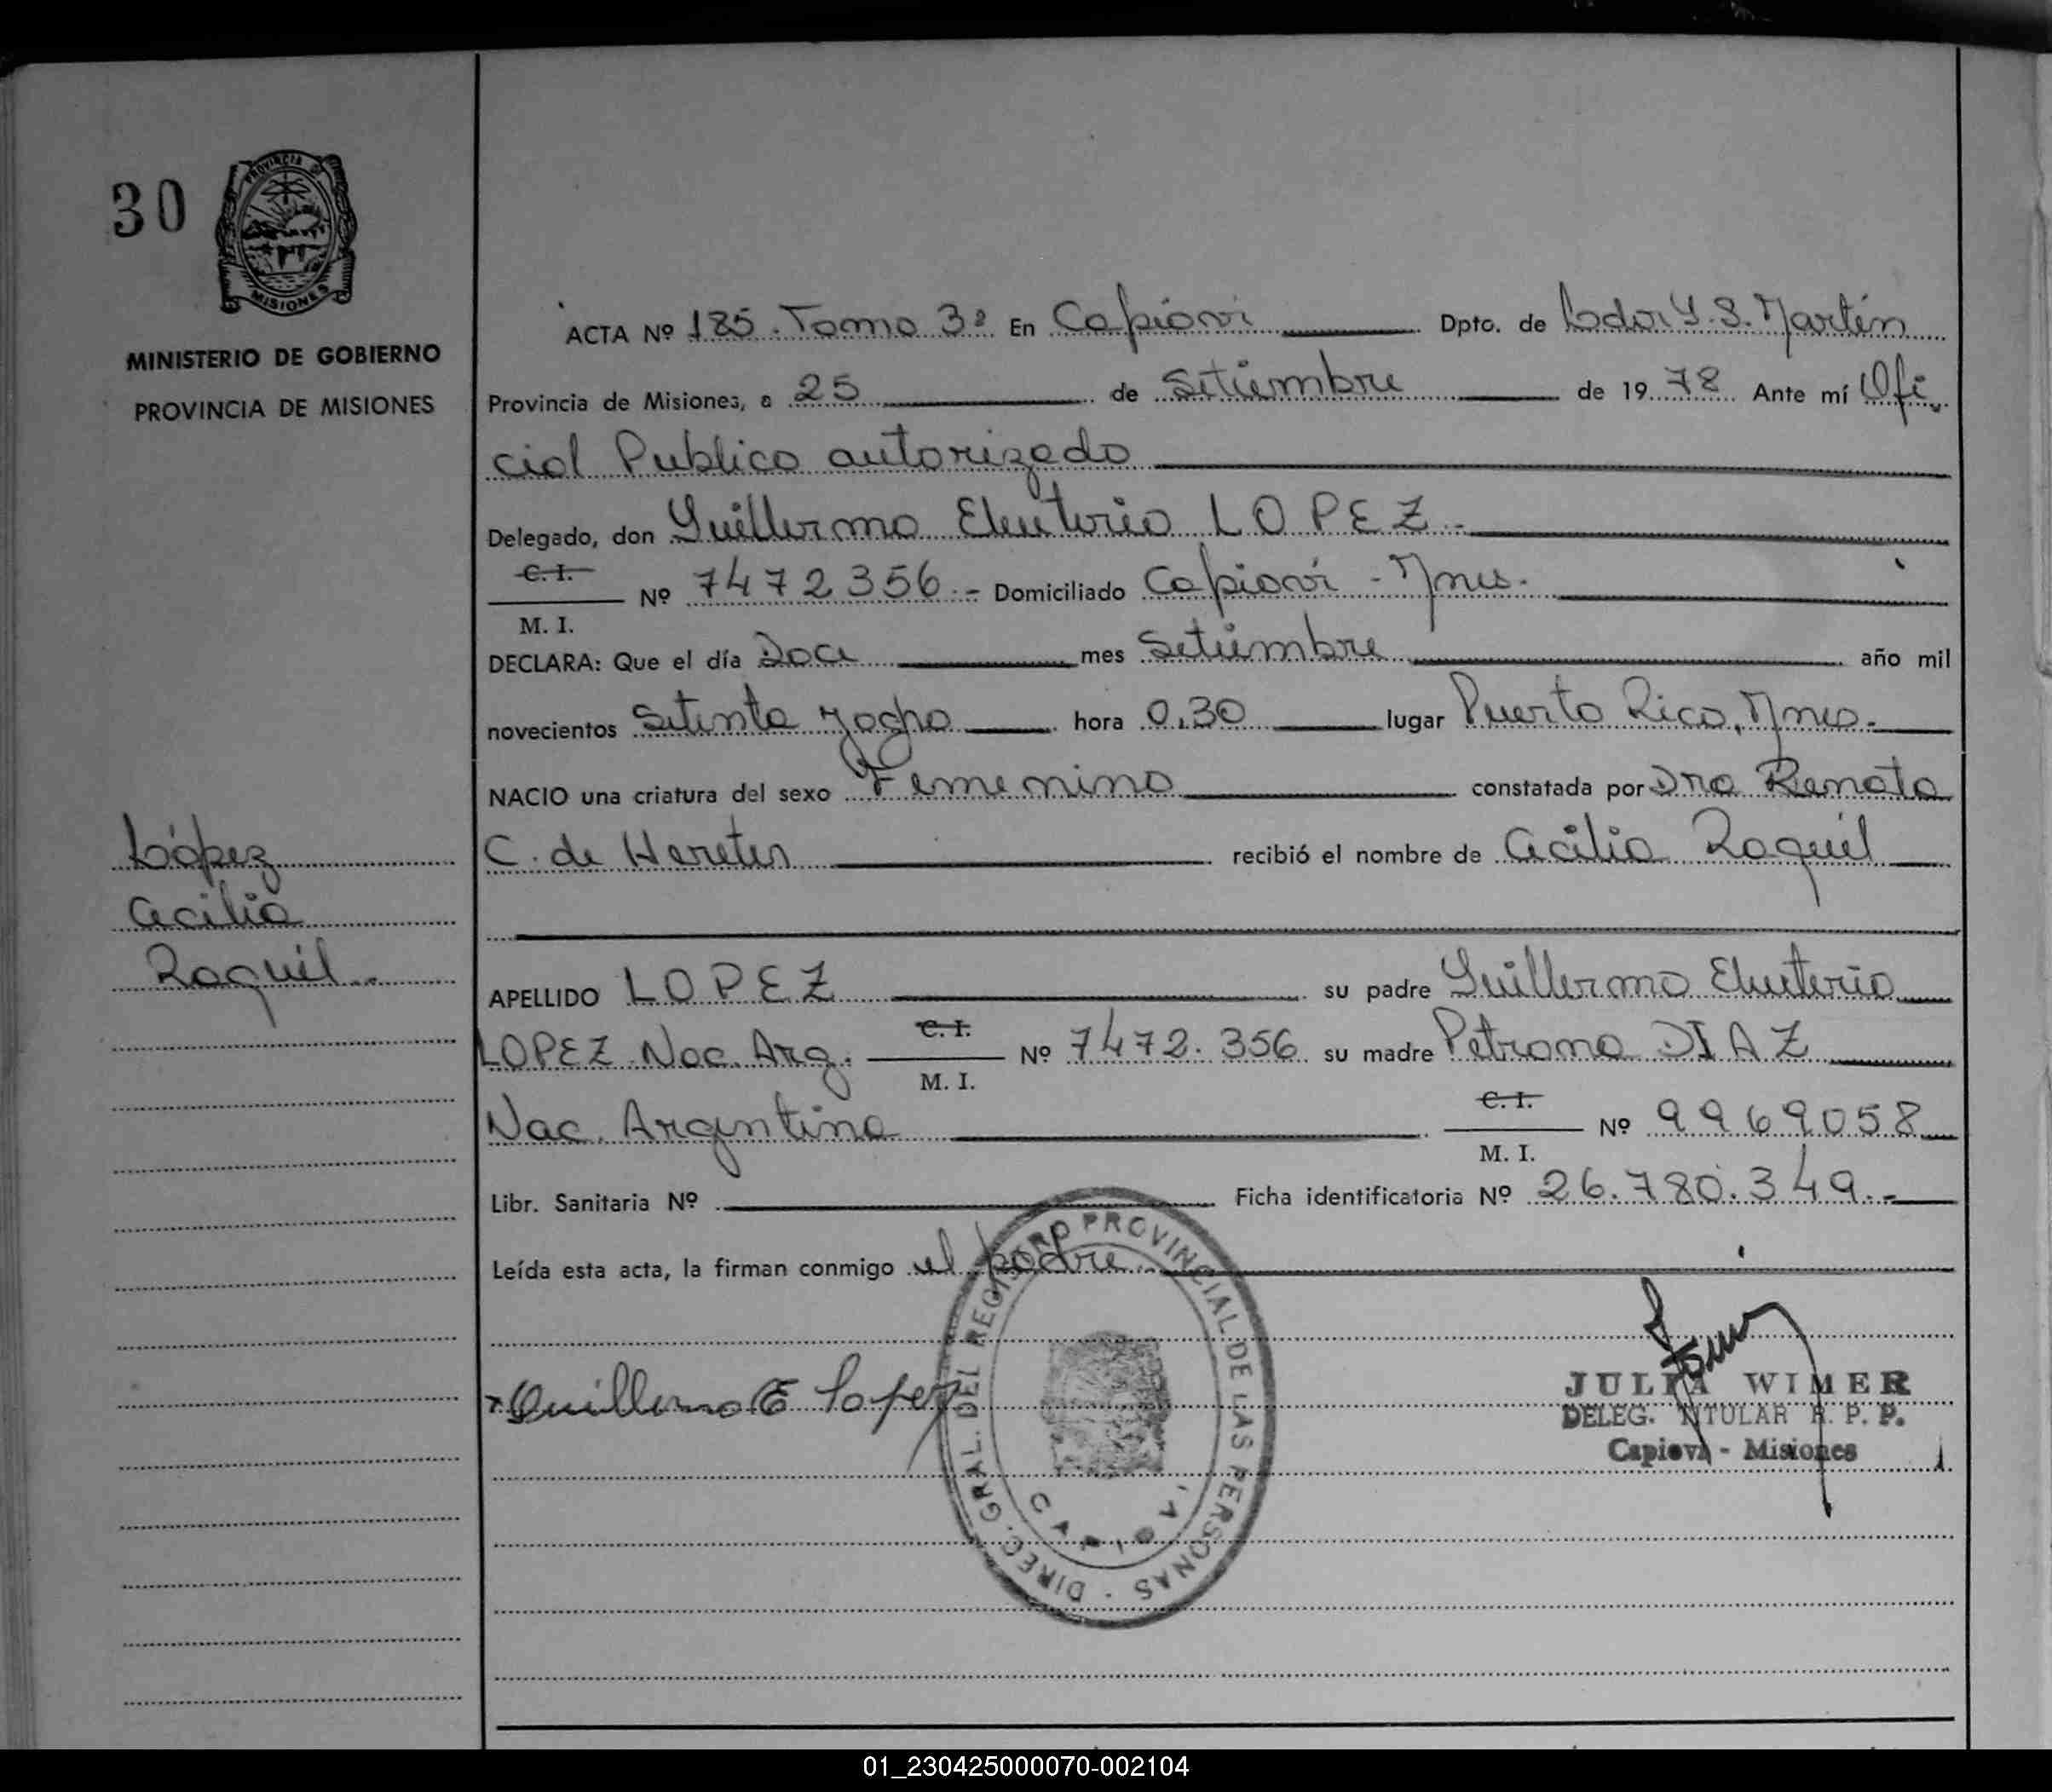 30
PROVINCIA DE
MISIONES
MINISTERIO DE GOBIERNO
PROVINCIA DE MISIONES
López
Cecilia
Raquel..
ACTA Nº 185. Tomo 3º En Capioví Dpto. de Ldor G. S. Martín
Provincia de Misiones, a 25 de Setiembre de 1978 Ante mí Ofi-
cial Publico autorizado
Delegado, don Guillermo Eleuterio LOPEZ.-
C. I.
Nº 7472356.- Domiciliado Capioví - Mnes.
M. I.
DECLARA: Que el día Doce mes Setiembre año mil
novecientos Setenta y ocho hora 0,30 lugar Puerto Rico, Mnes.-
NACIO una criatura del sexo Femenino constatada por Dra Renata
C. de Hereter recibió el nombre de Cecilia Raquel
APELLIDO LOPEZ su padre Guillermo Eleuterio
LOPEZ. Nac. Arg. C. I. Nº 7472.356 su madre Petrona DIAZ
M. I.
Nac. Argentina C. I. Nº 9969058
M. I.
Libr. Sanitaria Nº Ficha identificatoria Nº 26.780.349.-
Leída esta acta, la firman conmigo el padre
Guillermo E Lopez
DIREC. GRAL. DEL REGISTRO PROVINCIAL DE LAS PERSONAS
CAPIOVI
JULIA WIMER
DELEG. TITULAR R. P. P.
Capioví - Misiones
01_230425000070-002104